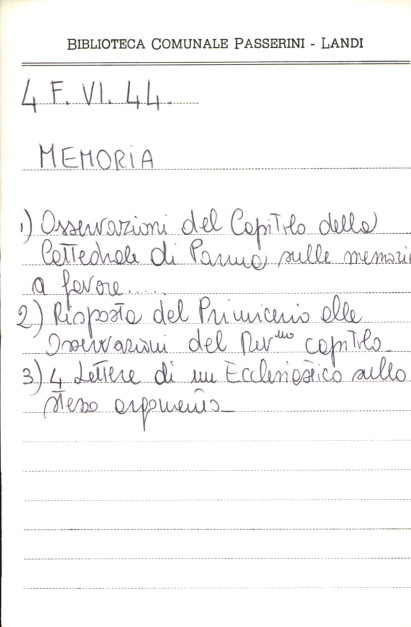 BIBLIOTECA COMUNALE PASSERINI - LANDI
4 F. VI. 44.
MEMORIA
1) Osservazioni del Capitolo della
Cattedrale di Parma sulle memorie
a favore.....
2) Risposta del Primicerio alle
Osservazioni del Rev.mo capitolo
3) 4 Lettere di un Ecclesiastico sullo
stesso argomento